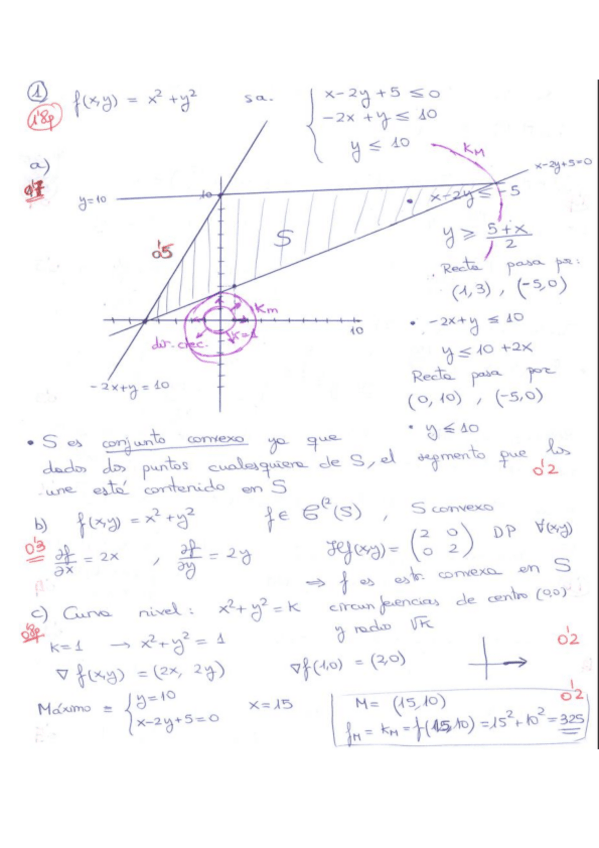 ① f(x,y) = x² + y²   s.a.   { x-2y+5 ≤ 0
1'8p   -2x+y ≤ 10
y ≤ 10
K_M
a)
0'7
x-2y+5=0
y=10   10   x-2y ≤ -5
0'5   S   y ≥ (5+x)/2
Recta pasa por:
(1,3), (-5,0)
K_m
K=1
dir. crec.
10
-2x+y=10
• -2x+y ≤ 10
y ≤ 10+2x
Recta pasa por
(0,10), (-5,0)
• y ≤ 10
• S es conjunto convexo ya que
dados dos puntos cualesquiera de S, el segmento que los
une está contenido en S   0'2
b) f(x,y) = x² + y²   f ∈ C²(S), S convexo
0'3   ∂f/∂x = 2x , ∂f/∂y = 2y   Hf(x,y) = (2 0 / 0 2) DP ∀(x,y)
⇒ f es estr. convexa en S
c) Curva nivel: x² + y² = K circunferencias de centro (0,0)
0'8p   y radio √K
K=1 → x² + y² = 1   0'2
∇f(x,y) = (2x, 2y)   ∇f(1,0) = (2,0)
0'2
Máximo ≡ { y=10   x=15   M = (15,10)
x-2y+5=0   f_M = K_M = f(15,10) = 15² + 10² = 325